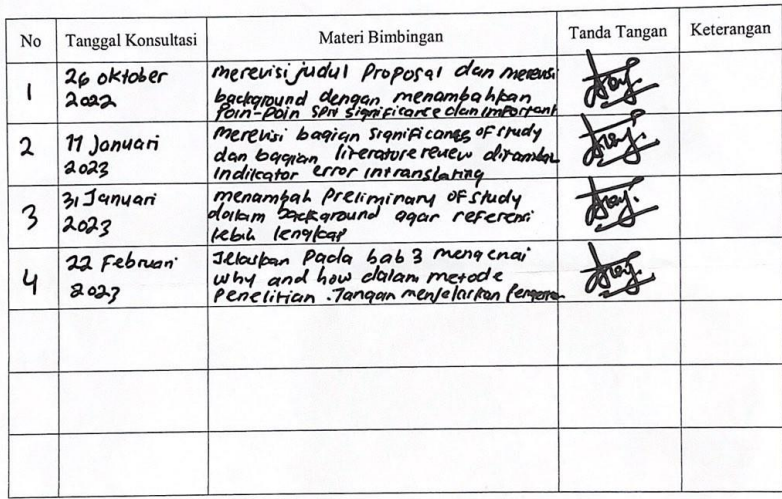 No Tanggal Konsultasi Materi Bimbingan Tanda Tangan Keterangan
1 26 Oktober merevisi judul Proposal dan merevisi
2022 background dengan menambahkan
Poin-Poin significance dan important
2 11 Januari merevisi bagian significances of study
2023 dan bagian literature review ditambah
Indikator error in translating
3 31 Januari menambah Preliminary of study
2023 dalam background agar referensi
lebih lengkap
4 22 Februari Jelaskan Pada bab 3 mengenai
2023 why and how dalam metode
Penelitian . Jangan menjelaskan